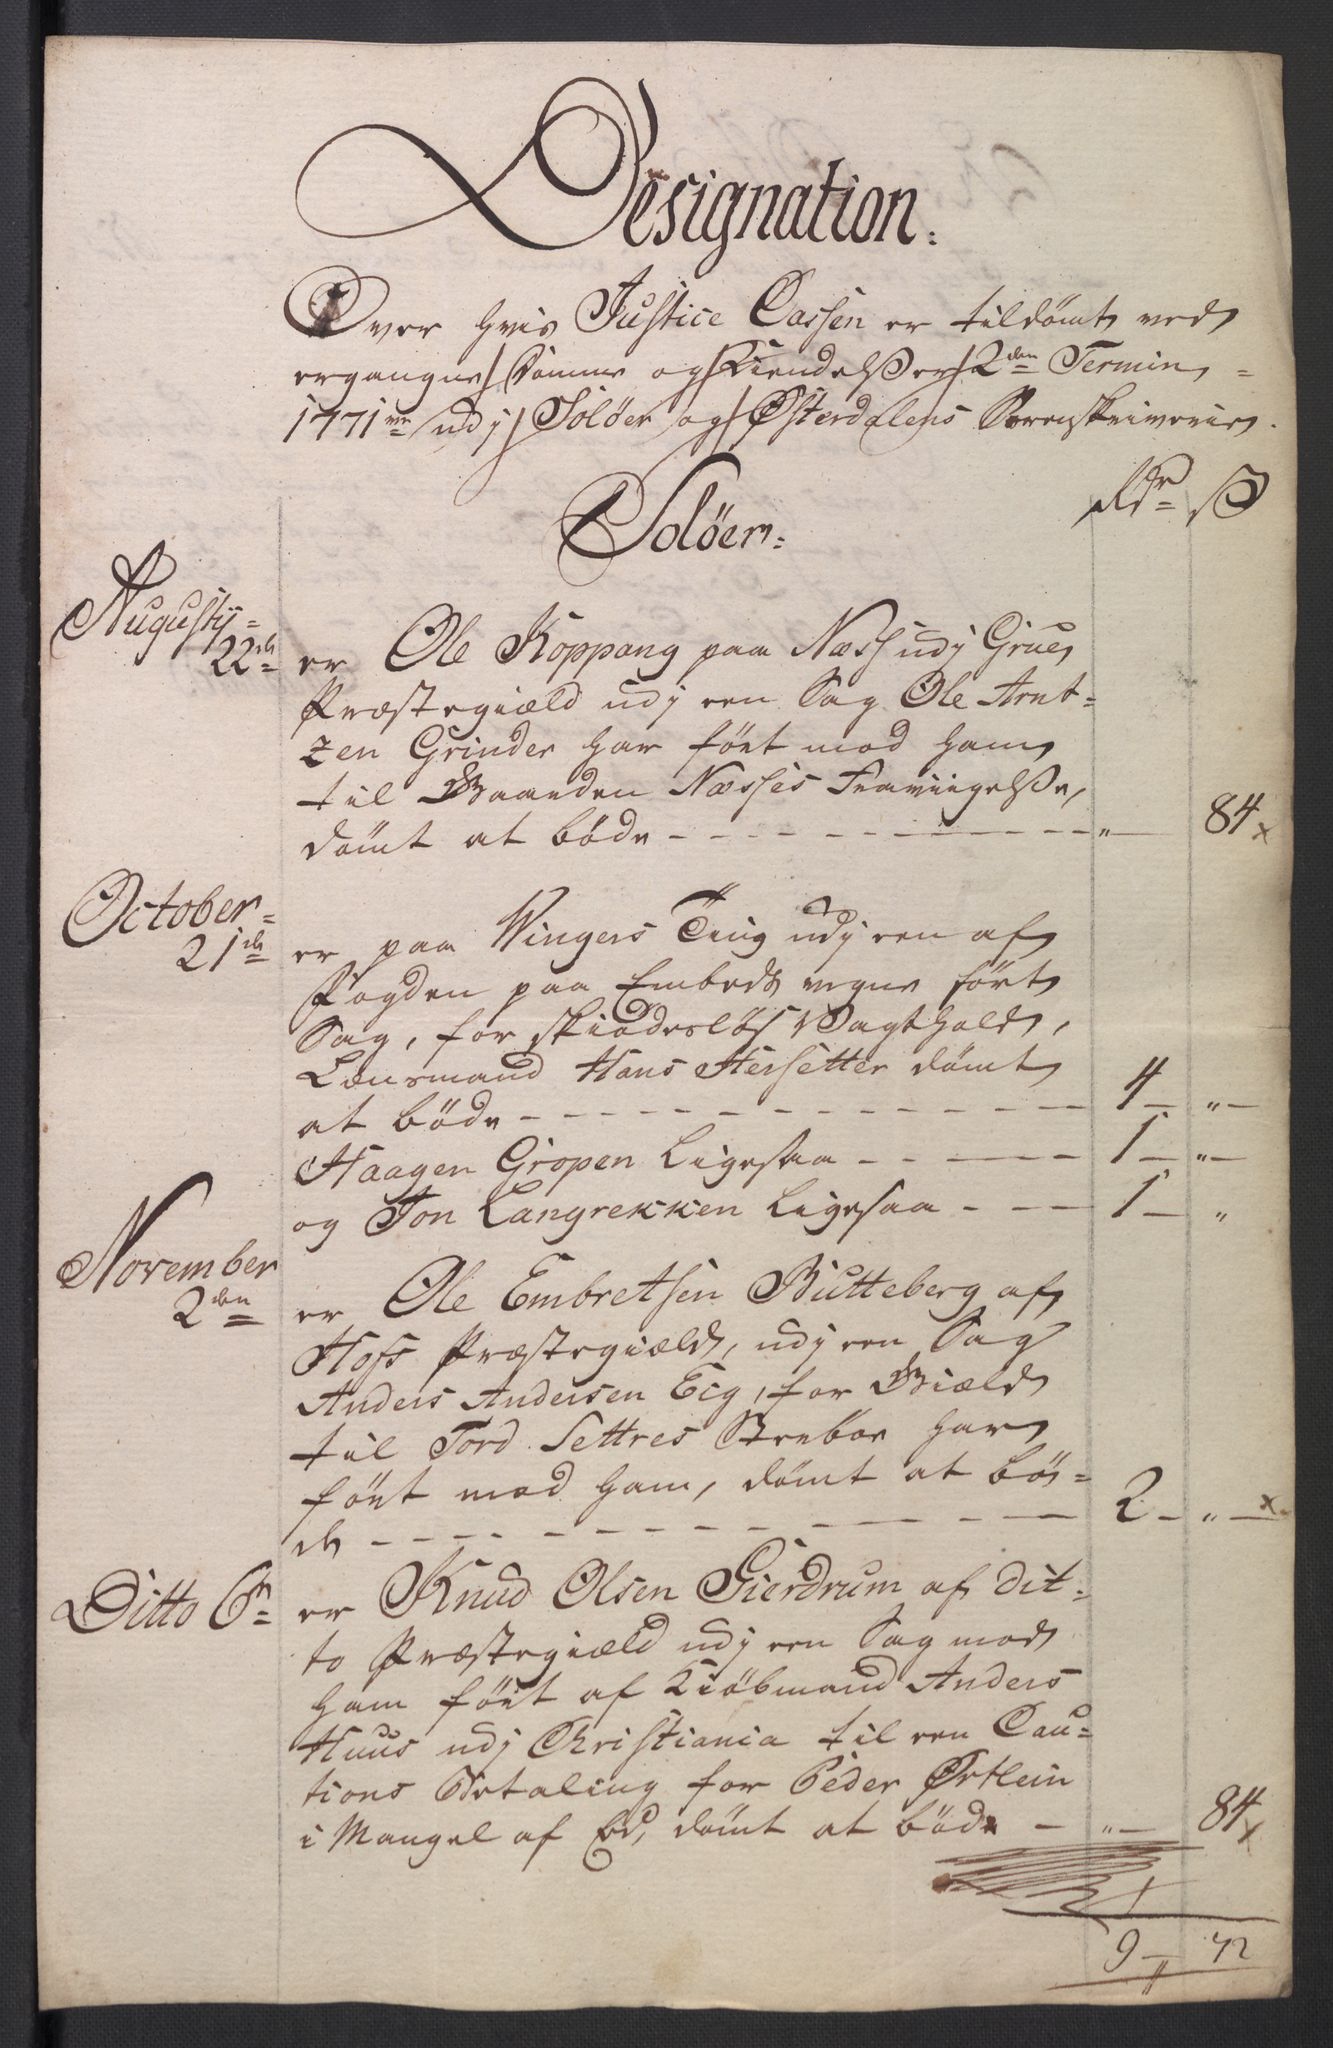 Designation.
Over hvis Justice Cassen er tildömt ved
ergangne Domme og Kiendelsser 2den Termin
1771 udj Solöer og Østerdalens Sorenskriverie.
Rdr ß
Solöer.
Augustij
22de er Ole Koppang paa Næss udj Grue
Præstegiæld udj een Sag Ole Arnt-
zen Grinder har fört mod ham
til Gaarden Næsses Fravigelsse,
dömt at böde - - - " 84 x
October
21de er paa Wingers Ting udj een af
Fogden paa Embeds vegne fört
Sag, for skiödeslös Vagthold,
Lensmand Hans Hersetter dömt
at böde - - - 4 - " -
Haagen Gropen Ligesaa - - - 1 - " -
og Jon Langrekken Ligesaa - - - 1 - "
November
2den er Ole Embretsen Butteberg af
Hofs Præstegiæld, udj een Sag
Anders Andersen Eig, for Giæld
til Tord Settres Sterboe har
fört mod ham, dömt at bö-
de - - - 2 - " - x
Ditto 6te er Knud Olsen Gierdrum af dit-
to Præstegiæld udj een Sag mod
ham fört af Kiöbmand Anders
Huus udj Christiania til een Cau-
tions Betaling for Peder Ørtlein
i Mangel af Ed, dömt at böde - " - 84 x
9 - 72